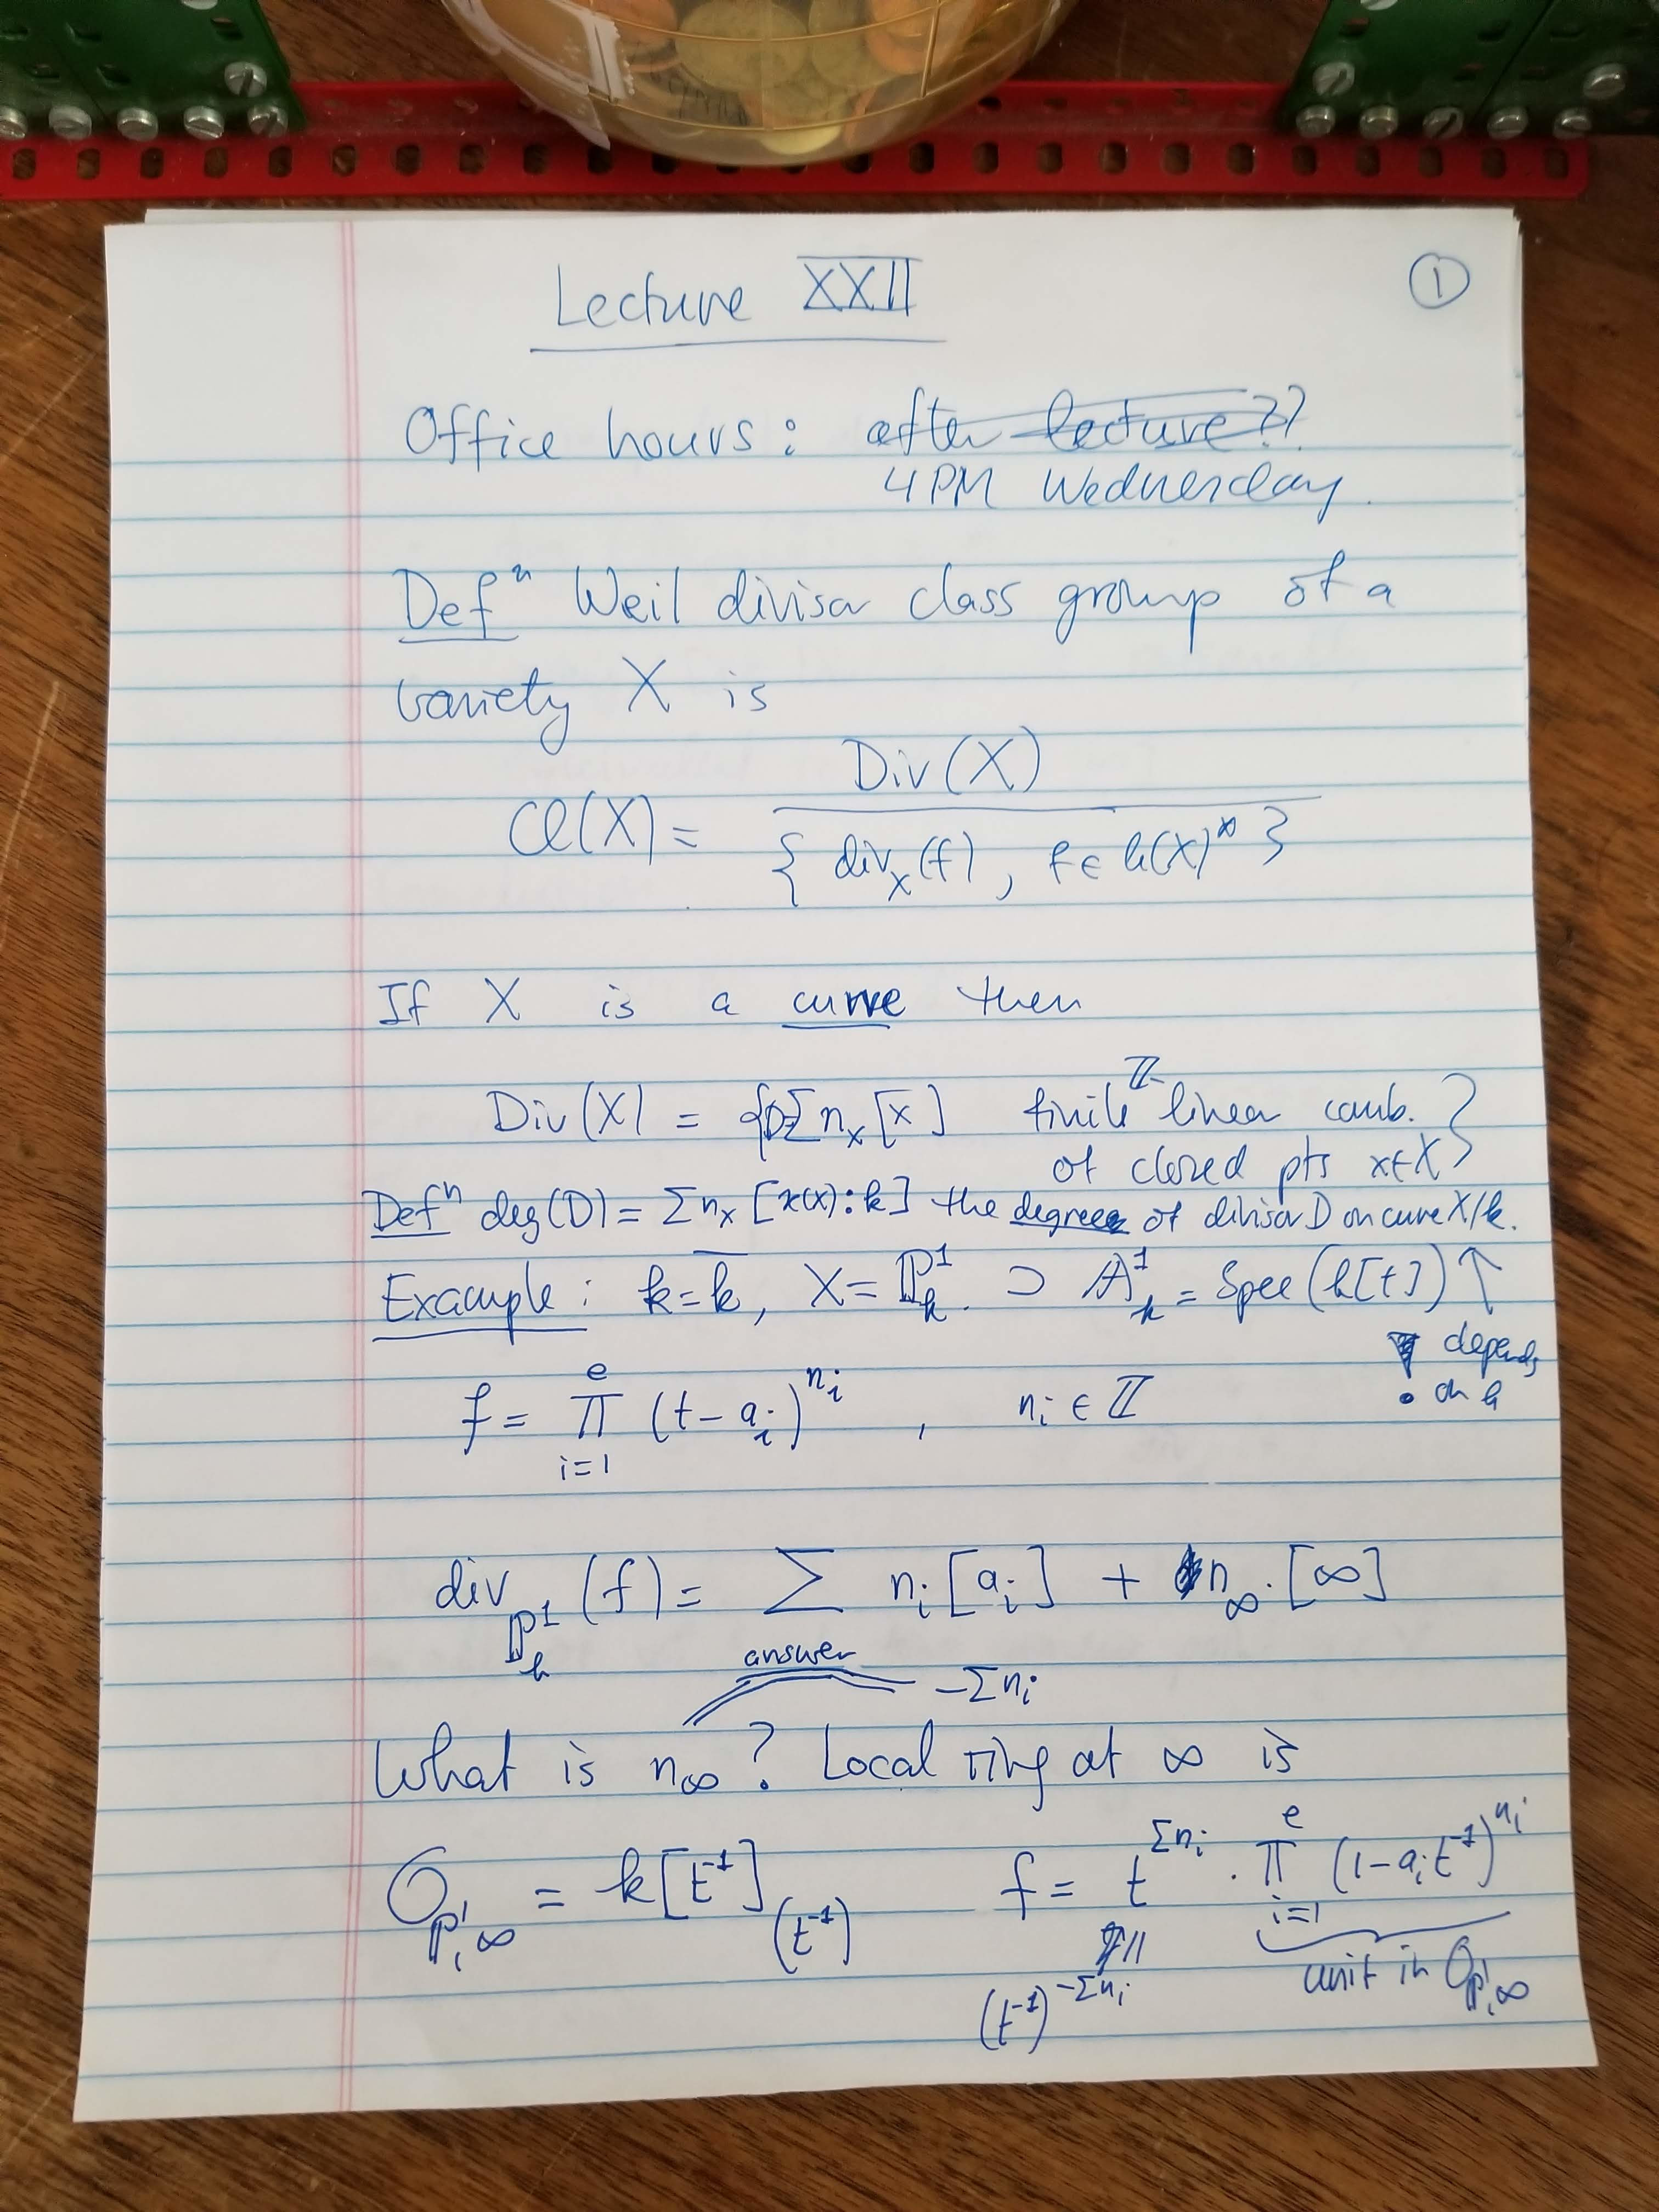 Lecture XXII
①
Office hours: after lecture??
4PM Wednesday.
Defⁿ Weil divisor class group of a
variety X is
Cl(X) = Div(X) / { div_X(f), f ∈ k(X)^* }
If X is a curve then
Div(X) = { D = Σ n_x [x] finite ℤ-linear comb.
of closed pts x∈X }
Defⁿ deg(D) = Σ n_x [κ(x):k] the degree of divisor D on curve X/k.
Example: k = k̄, X = ℙ^1_k ⊃ 𝔸^1_k = Spec(k[t]) ↑
! depends
on k
f = ∏_{i=1}^{e} (t - a_i)^{n_i} , n_i ∈ ℤ
div_{ℙ^1_k}(f) = Σ n_i [a_i] + n_∞ · [∞]
answer
-Σn_i
What is n_∞? Local ring at ∞ is
O_{ℙ^1,∞} = k[t^{-1}]_{(t^{-1})} f = t^{Σn_i} · ∏_{i=1}^{e} (1 - a_i t^{-1})^{n_i}
||
(t^{-1})^{-Σn_i}
unit in O_{ℙ^1,∞}